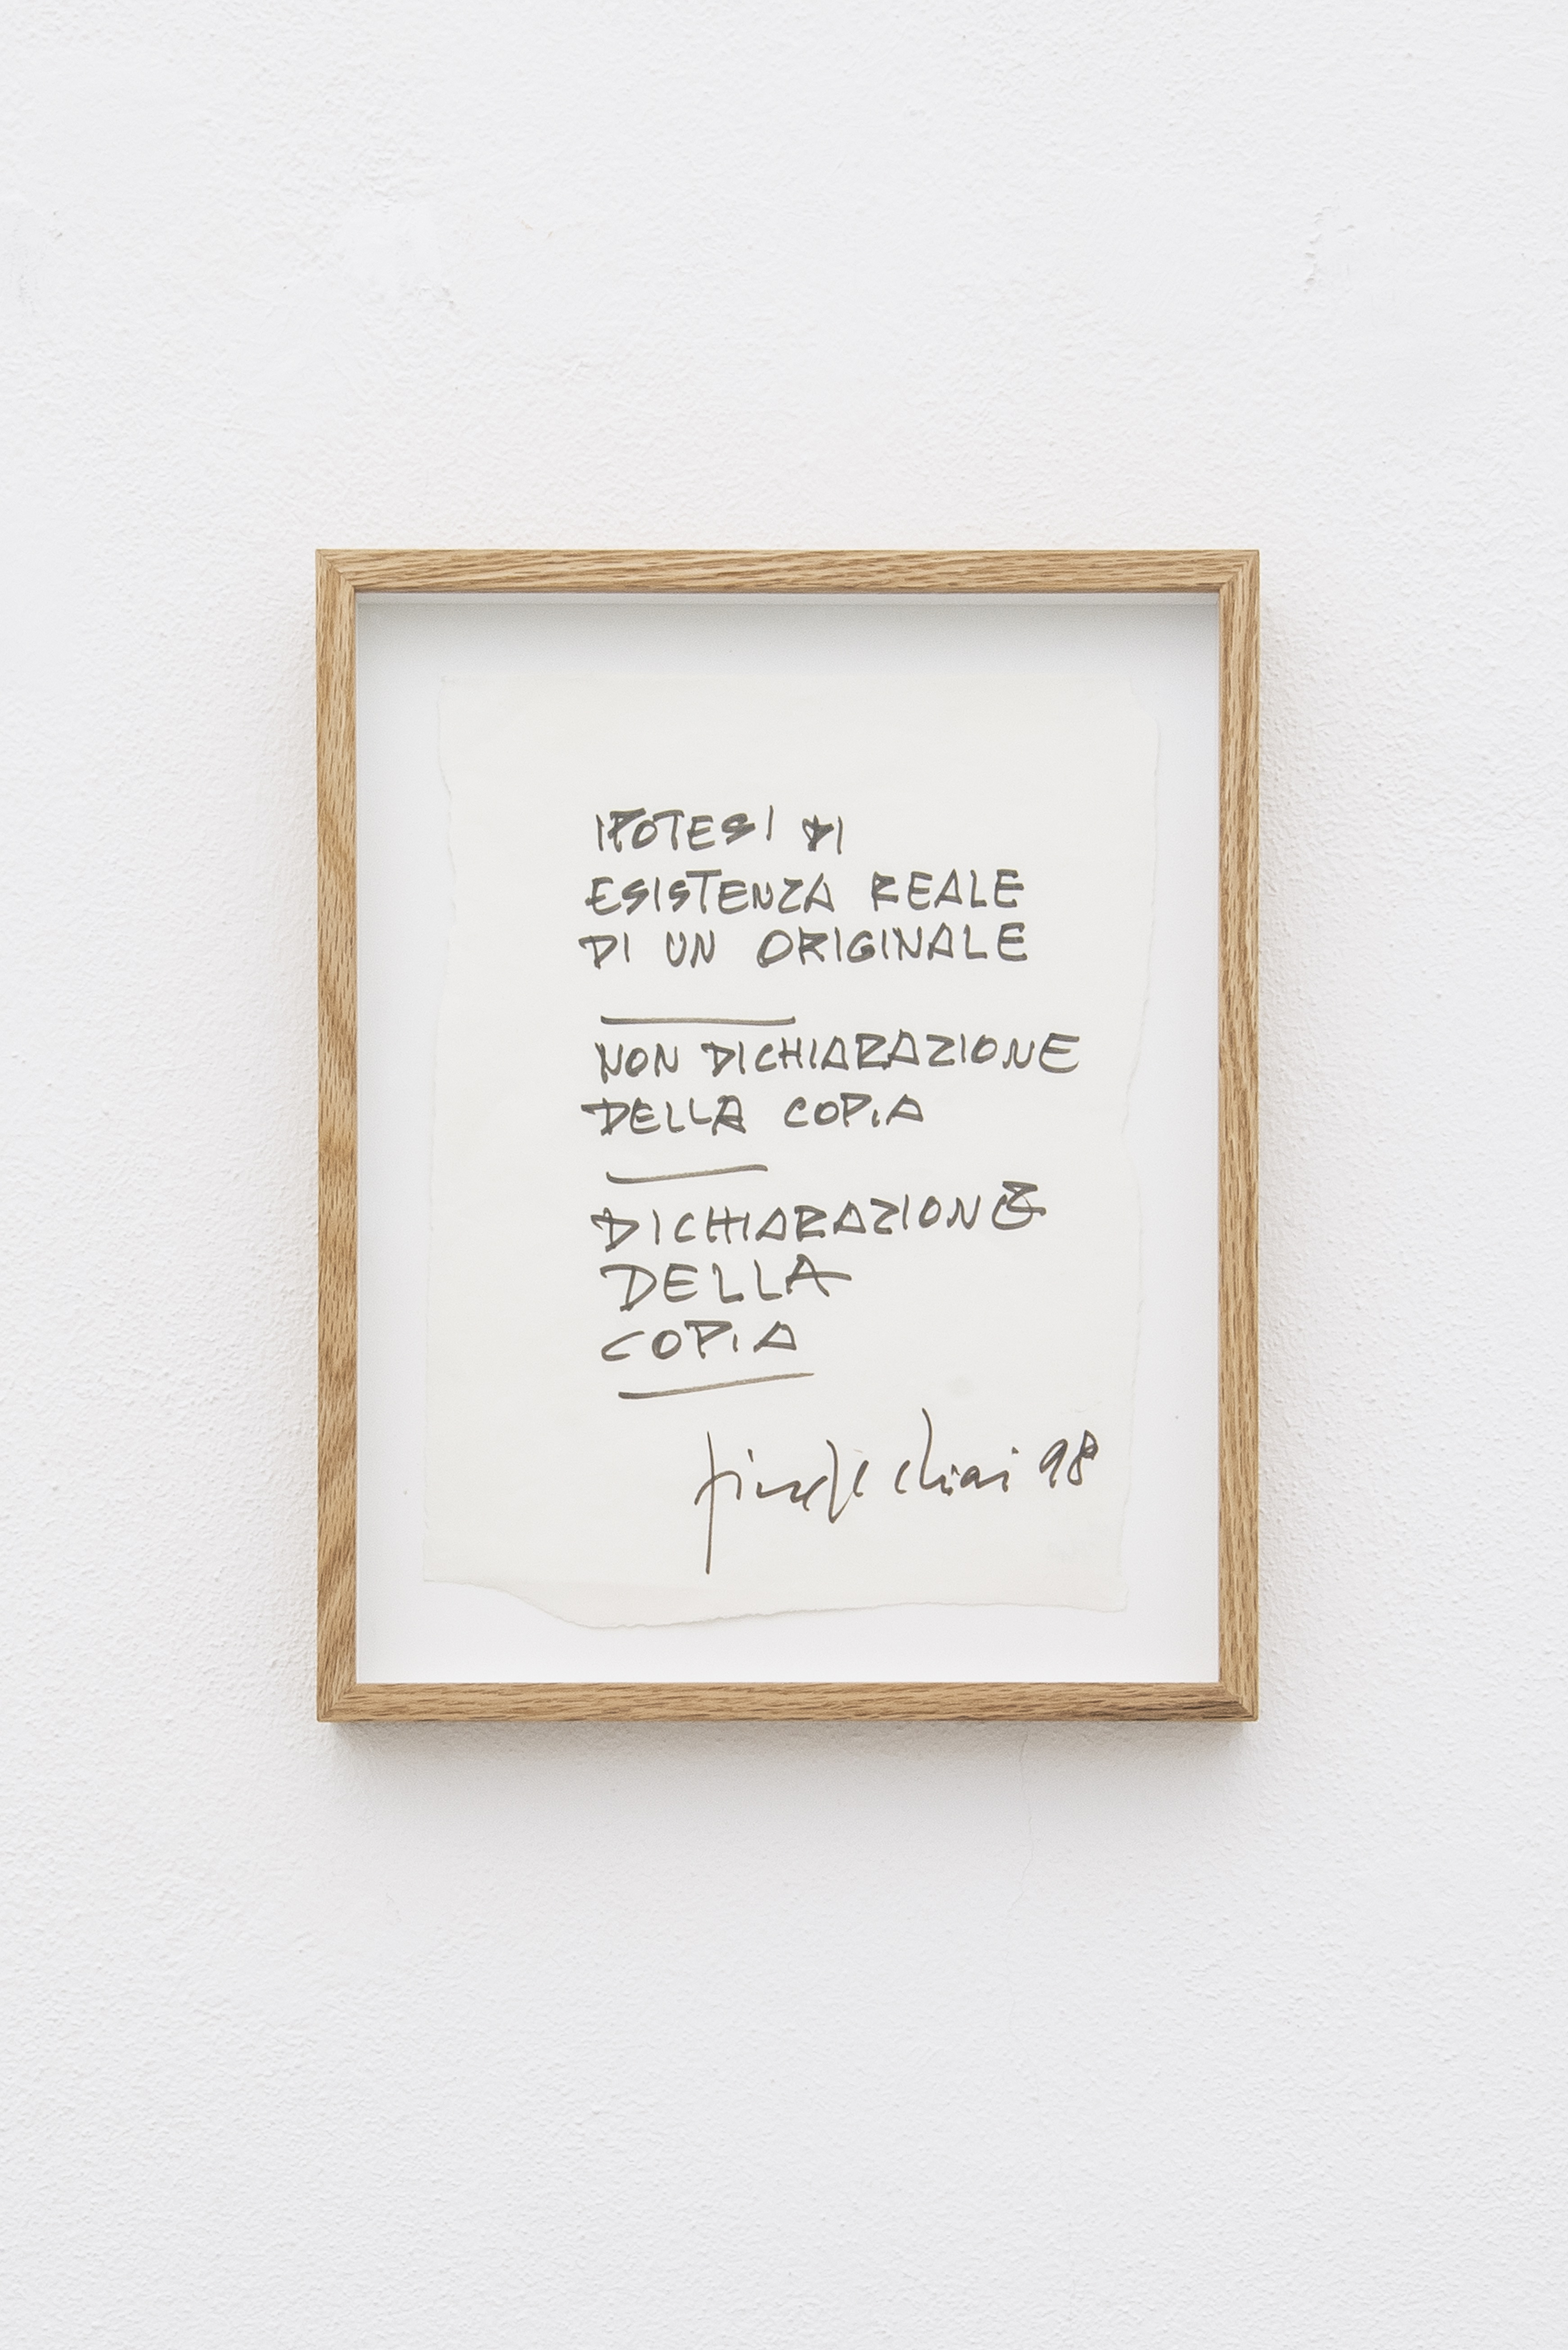 IPOTESI DI
ESISTENZA REALE
DI UN ORIGINALE
NON DICHIARAZIONE
DELLA COPIA
DICHIARAZIONE
DELLA
COPIA
giuseppe chiari 98